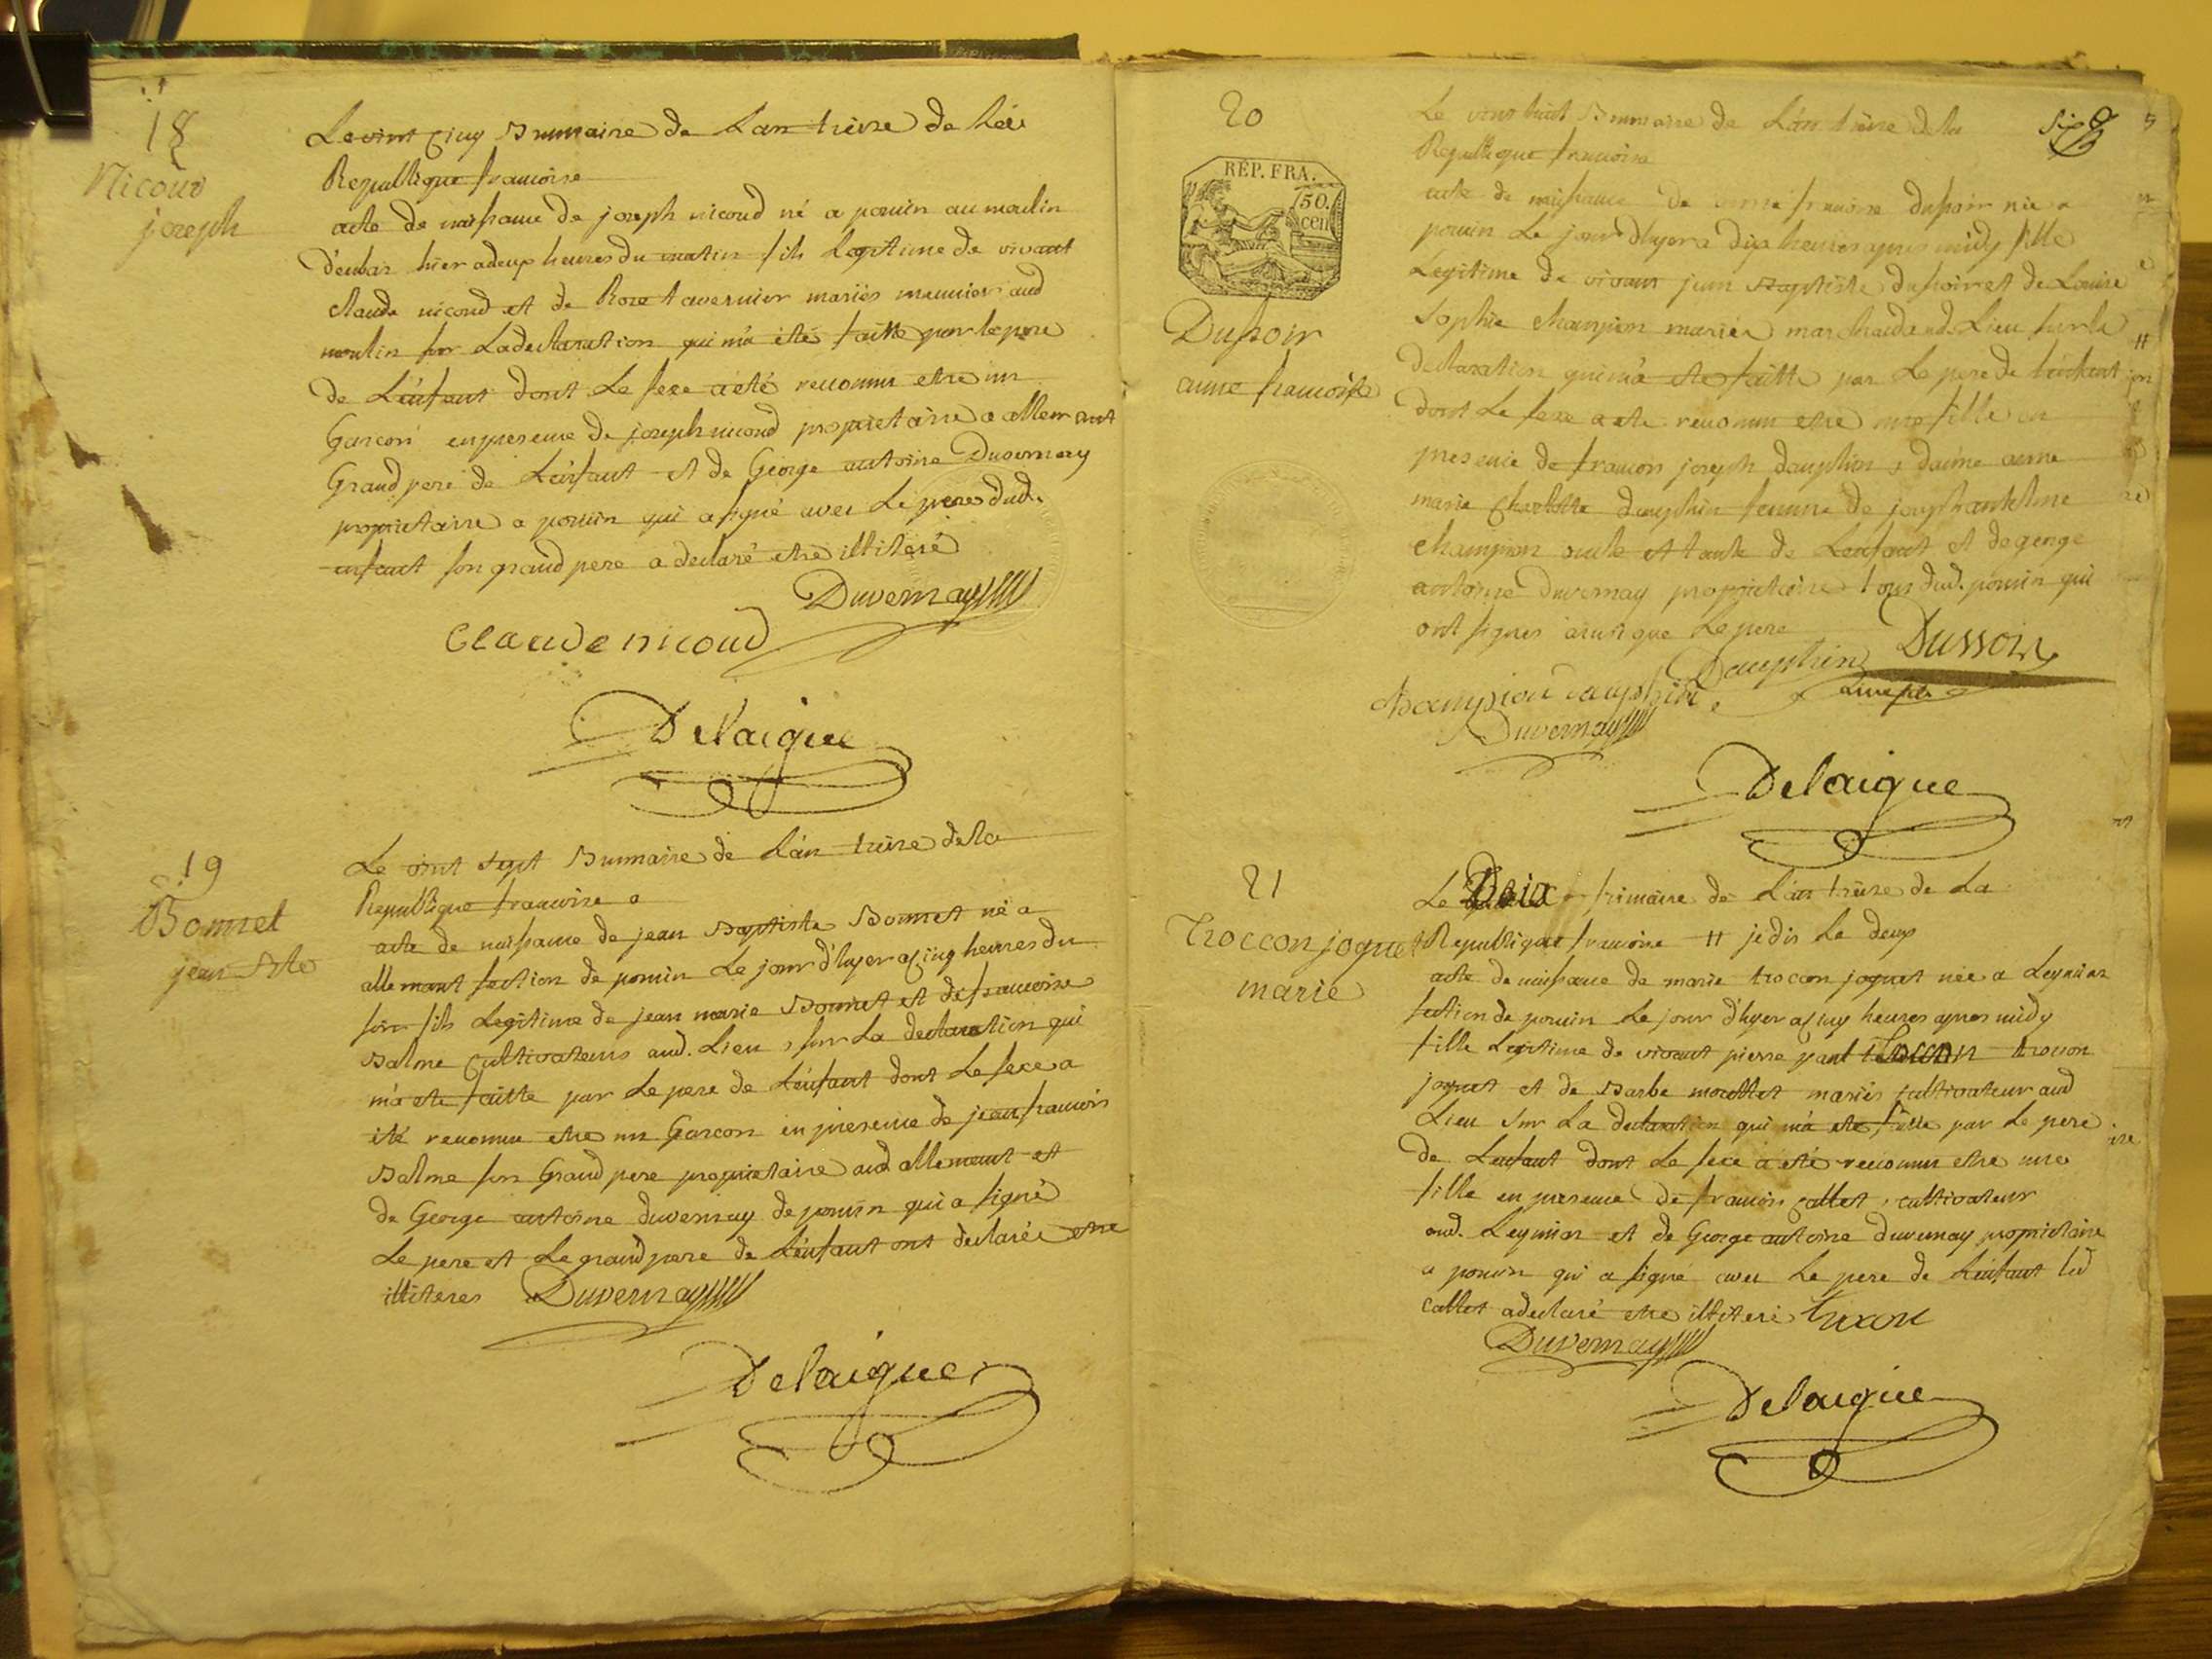 18
Nicoud
joseph
Le vint cinq Brumaire de L'an treize de la
Republique francoise
acte de naissance de joseph nicoud né a pouin au moulin
d'enbas hier a deux heures du matin fils legitime de vivant
claude nicoud et de Roze tavernier mariés meunier aud
moulin sur La declaration qui m'a été faitte par le pere
de L'enfant dont Le sexe a été reconnu etre un
Garcon en presence de joseph nicoud propriétaire a allemant
Grand pere de L'enfant et de George antoine Duvernay
proprietaire a pouin qui a signé avec Le pere dud.
enfant son grand pere a declaré etre illiteré
Duvernay
Claude nicoud
Delaigue
19
Bonnet
jean Bte
Le vint sept Brumaire de L'an treize de la
Republique francoise
acte de naissance de jean Baptiste Bonnet né a
allemant section de pouin Le jour d'hyer a cinq heures du
soir fils Legitime de jean marie Bonnet et de francoise
Balme cultivateurs aud. Lieu, sur La declaration qui
m'a ete faitte par Le pere de L'enfant dont Le sexe a
été reconnu etre un Garcon en presence de jean francois
Balme son Grand pere proprietaire aud allemant et
de George antoine duvernay de pouin qui a signé
Le pere et Le grand pere de L'enfant ont declarés etre
illiteres Duvernay
Delaigue
20
six
RÉP. FRA.
50.
cen
Dussoir
anne francoise
Le vint huit Brumaire de L'an treize de la
Republique francoise
acte de naissance de anne francoise dussoir née a
pouin Le jour d'hyer a dix heures apres midy fille
Legitime de vivant jean Baptiste dussoir et de Louise
Sophie champion mariés marchands aud. Lieu sur la
declaration qui m'a ete faitte par Le pere de L'enfant
dont Le sexe a ete reconnu etre une fille en
presence de francois joseph dauphin, daime anne
marie charlotte dauphin femme de
champion oncle et tante de L'enfant et de george
antoine Duvernay proprietaire tous dud. pouin qui
ont signés ainsi que Le pere
Dussoir
Dauphin
champion dauphin
Duvernay
Delaigue
21
Troccon joquet
marie
Le Deix frimaire de L'an treize de La
Republique francoise # je dis Le deux
acte de naissance de marie trocon joquet née a Leynieu
section de pouin Le jour d'hyer a cinq heures apres midy
fille Legitime de vivant pierre paul trocon
joquet et de Barbe mollet mariés cultivateur aud
Lieu sur La declaration qui m'a ete faitte par Le pere
de L'enfant dont Le sexe a été reconnu etre une
fille en presence de francois callet, cultivateur
aud. et de George antoine duvernay proprietaire
a pouin qui a signé avec Le pere de L'enfant led
callet a declaré etre illiteré trocon
Duvernay
Delaigue